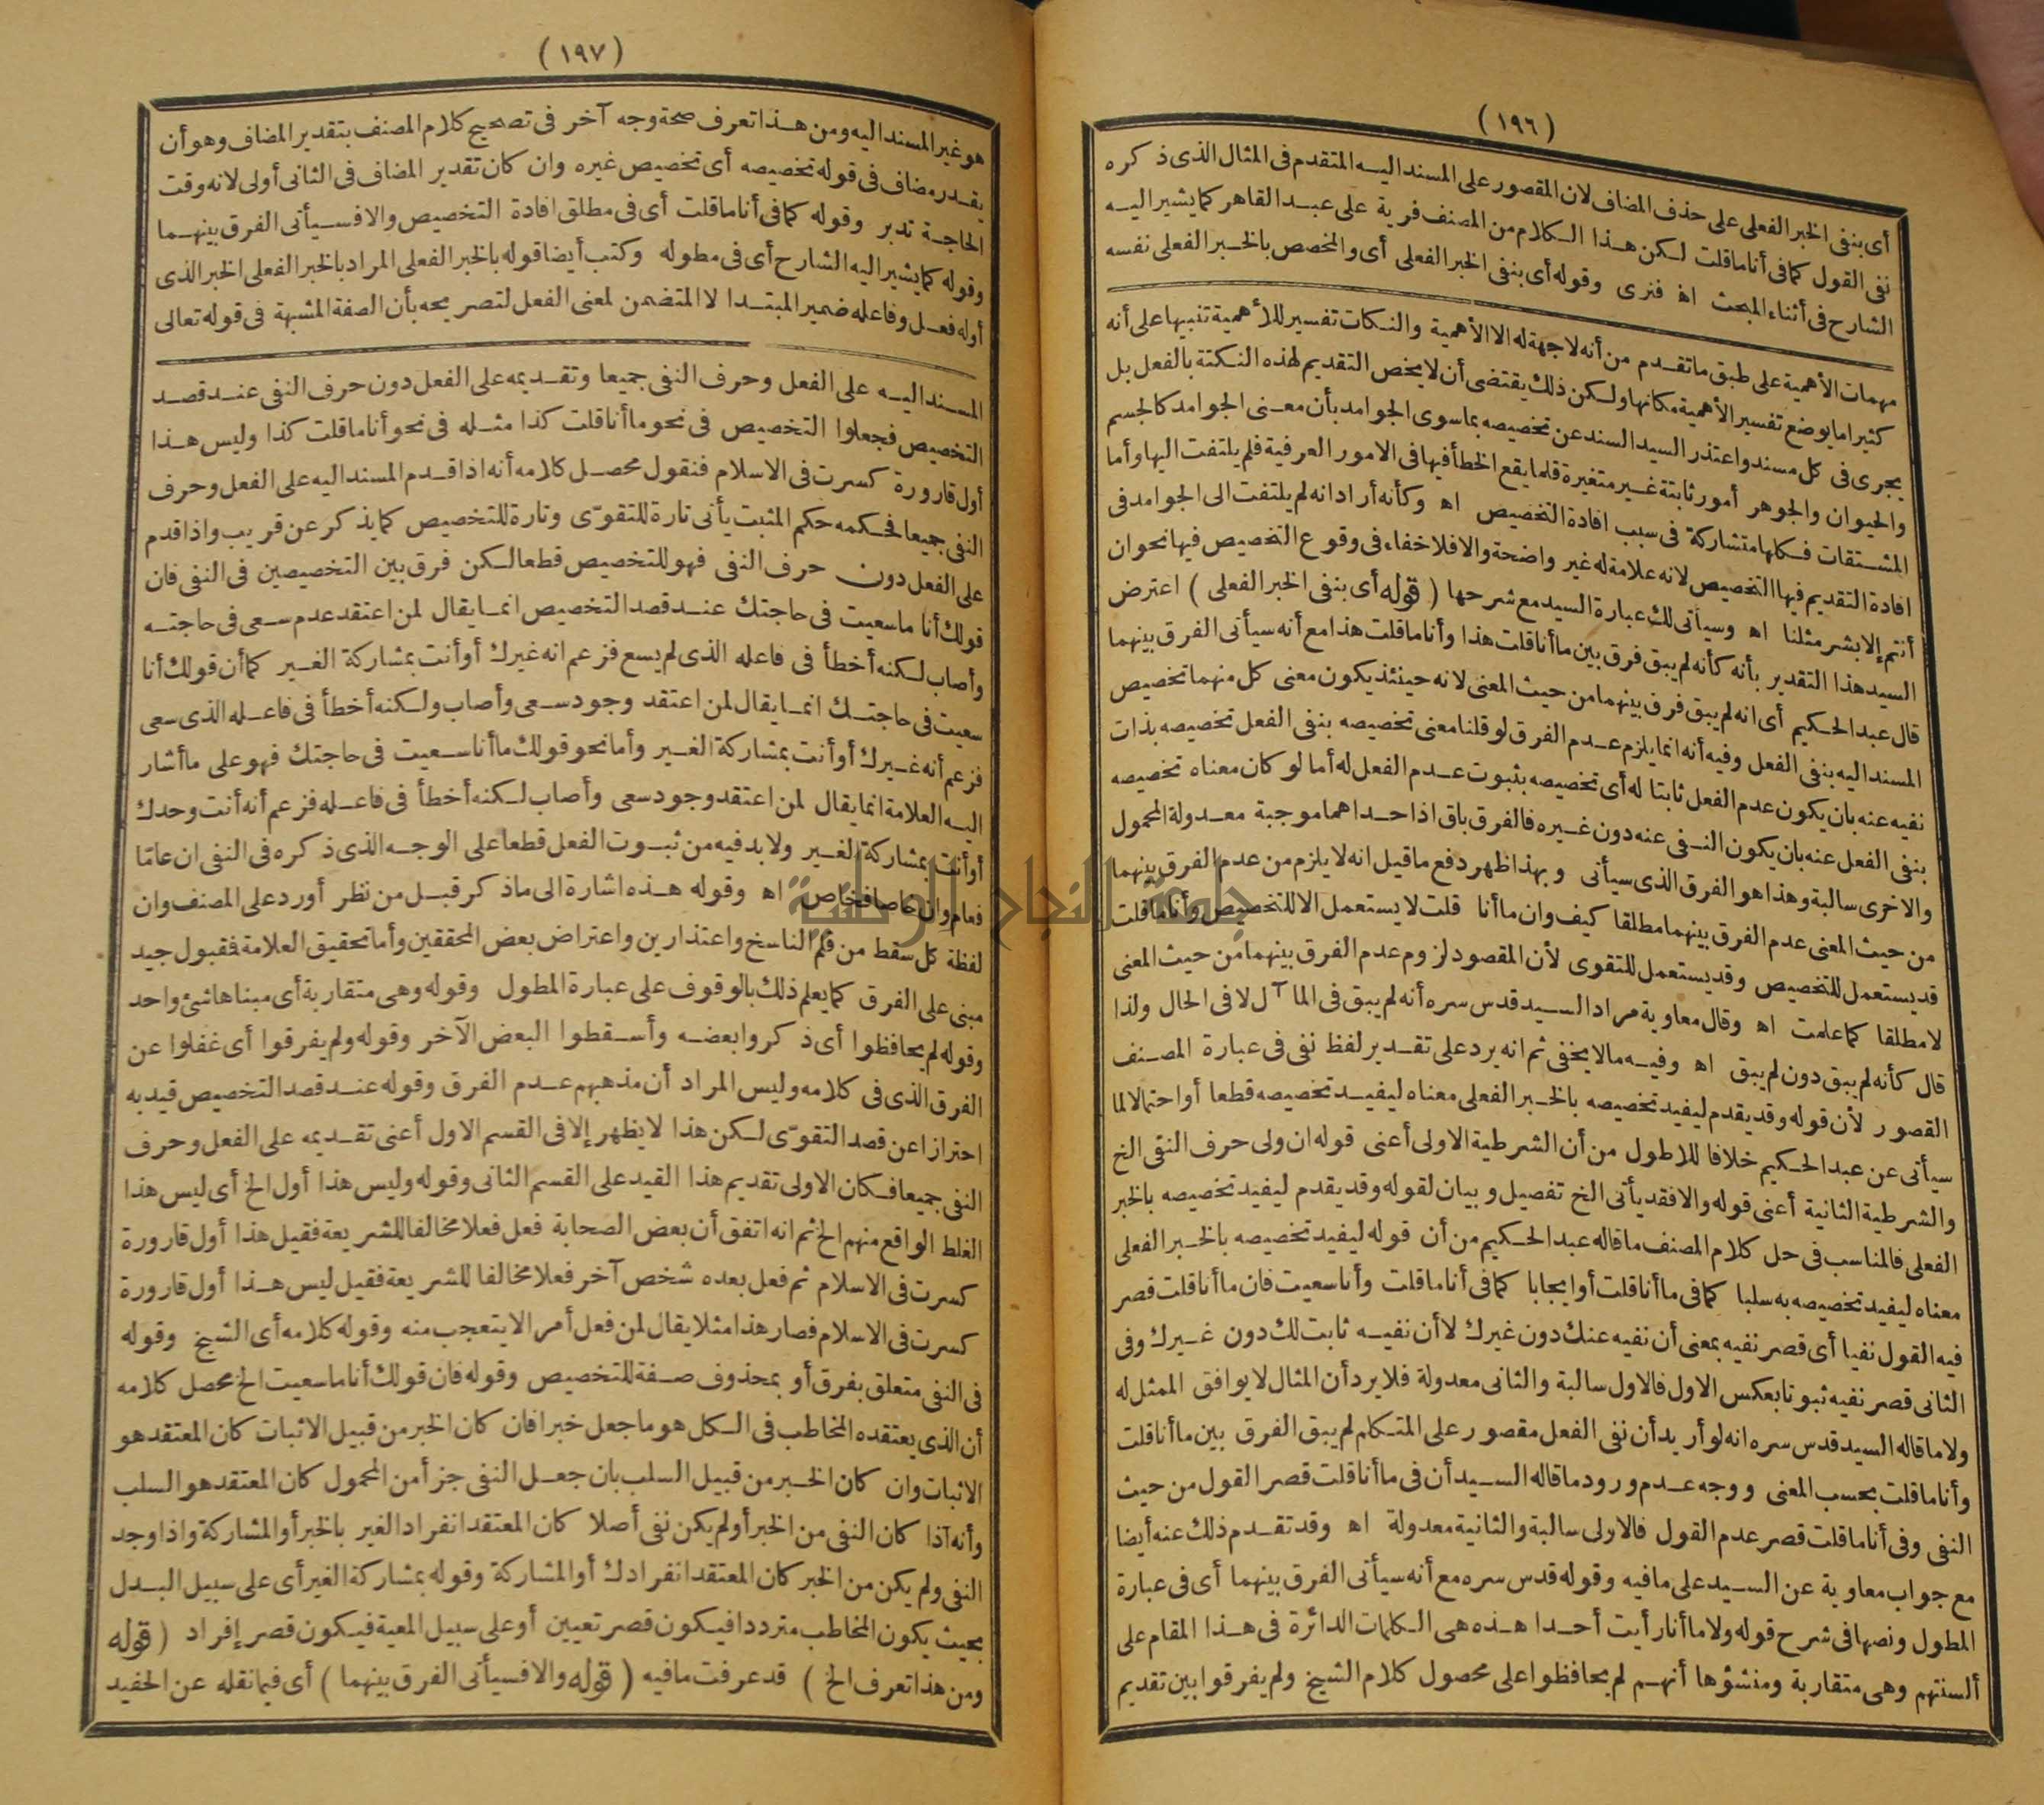 (١٩٦)
أى بنفى الخبر الفعلى على حذف المضاف لان المقصور على المسند اليه المتقدم فى المثال الذى ذكره
نفى القول كما فى أنا ما قلت لكن هذا الكلام من المصنف فرية على عبد القاهر كما يشير اليه
الشارح فى أثناء المبحث اه فنرى وقوله أى بنفى الخبر الفعلى أى والمخصص بالخبر الفعلى نفسه
مهمات الأهمية على طبق ما تقدم من أنه لا جهة له الا الأهمية والنكات تفسير للأهمية تنبيها على أنه
كثيرا ما يوضع تفسير الأهمية مكانها ولكن ذلك يقتضى أن لا يخص التقديم لهذه النكتة بالفعل بل
يجرى فى كل مسند واعتذر السيد السند عن تخصيصه بما سوى الجوامد بأن معنى الجوامد كالجسم
والحيوان والجوهر أمور ثابتة غير متغيرة قلما يقع الخطأ فيها فى الامور العرفية فلم يلتفت اليها وأما
المشتقات فكلها متشاركة فى سبب افادة التخصيص اه وكأنه أراد انه لم يلتفت الى الجوامد فى
افادة التقديم فيها التخصيص لانه علامة له غير واضحة والا فلا خفاء فى وقوع التخصيص فيها نحو ان
أنتم إلا بشر مثلنا اه وسيأتى لك عبارة السيد مع شرحها (قوله أى بنفى الخبر الفعلى) اعترض
السيد هذا التقدير بأنه كأنه لم يبق فرق بين ما أنا قلت هذا وأنا ما قلت هذا مع أنه سيأتى الفرق بينهما
قال عبد الحكيم أى انه لم يبق فرق بينهما من حيث المعنى لانه حينئذ يكون معنى كل منهما تخصيص
المسند اليه بنفى الفعل وفيه أنه انما يلزم عدم الفرق لو قلنا معنى تخصيصه بنفى الفعل تخصيصه بذات
نفيه عنه بان يكون عدم الفعل ثابتا له أى تخصيصه بثبوت عدم الفعل له أما لو كان معناه تخصيصه
بنفى الفعل عنه بان يكون النفى عنه دون غيره فالفرق باق اذ احداهما موجبة معدولة المحمول
والاخرى سالبة وهذا هو الفرق الذى سيأتى وبهذا ظهر دفع ما قيل انه لا يلزم من عدم الفرق بينهما
من حيث المعنى عدم الفرق بينهما مطلقا كيف وان ما أنا قلت لا يستعمل الا للتخصيص وأنا ما قلت
قد يستعمل للتخصيص وقد يستعمل للتقوى لأن المقصود لزوم عدم الفرق بينهما من حيث المعنى
لا مطلقا كما علمت اه وقال معاوية مراد السيد قدس سره أنه لم يبق فى المآل لا فى الحال ولذا
قال كأنه لم يبق دون لم يبق اه وفيه مالا يخفى ثم انه يرد على تقدير لفظ نفى فى عبارة المصنف
القصور لأن قوله وقد يقدم ليفيد تخصيصه بالخبر الفعلى معناه ليفيد تخصيصه قطعا أو احتمالا لما
سيأتى عن عبد الحكيم خلافا للاطول من أن الشرطية الاولى أعنى قوله ان ولى حرف النفى الخ
والشرطية الثانية أعنى قوله والا فقد يأتى الخ تفصيل وبيان لقوله وقد يقدم ليفيد تخصيصه بالخبر
الفعلى فالمناسب فى حل كلام المصنف ما قاله عبد الحكيم من أن قوله ليفيد تخصيصه بالخبر الفعلى
معناه ليفيد تخصيصه به سلبا كما فى ما أنا قلت أو ايجابا كما فى أنا ما قلت وأنا سعيت فان ما أنا قلت قصر
فيه القول نفيا أى قصر نفيه بمعنى أن نفيه عنك دون غيرك لا أن نفيه ثابت لك دون غيرك وفى
الثانى قصر نفيه ثبوتا بعكس الاول فالاول سالبة والثانى معدولة فلا يرد أن المثال لا يوافق الممثل له
ولا ما قاله السيد قدس سره انه لو أريد أن نفى الفعل مقصور على المتكلم لم يبق الفرق بين ما أنا قلت
وأنا ما قلت بحسب المعنى ووجه عدم ورود ما قاله السيد أن فى ما أنا قلت قصر القول من حيث
النفى وفى أنا ما قلت قصر عدم القول فالاولى سالبة والثانية معدولة اه وقد تقدم ذلك عنه أيضا
مع جواب معاوية عن السيد على ما فيه وقوله قدس سره مع أنه سيأتى الفرق بينهما أى فى عبارة
المطول ونصها فى شرح قوله ولا ما أنا رأيت أحدا هذه هى الكلمات الدائرة فى هذا المقام على
ألسنتهم وهى متقاربة ومنشؤها أنهم لم يحافظوا على محصول كلام الشيخ ولم يفرقوا بين تقديم
(١٩٧)
هو غير المسند اليه ومن هذا تعرف صحة وجه آخر فى تصحيح كلام المصنف بتقدير المضاف وهو أن
يقدر مضاف فى قوله تخصيصه أى تخصيص غيره وان كان تقدير المضاف فى الثانى أولى لانه وقت
الحاجة تدبر وقوله كما فى أنا ما قلت أى فى مطلق افادة التخصيص والا فسيأتى الفرق بينهما
وقوله كما يشير اليه الشارح أى فى مطوله وكتب أيضا قوله بالخبر الفعلى المراد بالخبر الفعلى الخبر الذى
أوله فعل وفاعله ضمير المبتدا لا المتضمن لمعنى الفعل لتصريحه بأن الصفة المشبهة فى قوله تعالى
المسند اليه على الفعل وحرف النفى جميعا وتقديمه على الفعل دون حرف النفى عند قصد
التخصيص فجعلوا التخصيص فى نحو ما أنا قلت كذا مثله فى نحو أنا ما قلت كذا وليس هذا
أول قارورة كسرت فى الاسلام فنقول محصل كلامه أنه اذا قدم المسند اليه على الفعل وحرف
النفى جميعا فحكمه حكم المثبت يأتى تارة للتقوّى وتارة للتخصيص كما يذكر عن قريب واذا قدم
على الفعل دون حرف النفى فهو للتخصيص قطعا لكن فرق بين التخصيصين فى النفى فان
قولك أنا ما سعيت فى حاجتك عند قصد التخصيص انما يقال لمن اعتقد عدم سعى فى حاجته
وأصاب لكنه أخطأ فى فاعله الذى لم يسع فزعم انه غيرك أو أنت بمشاركة الغير كما أن قولك أنا
سعيت فى حاجتك انما يقال لمن اعتقد وجود سعى وأصاب ولكنه أخطأ فى فاعله الذى سعى
فزعم أنه غيرك أو أنت بمشاركة الغير وأما نحو قولك ما أنا سعيت فى حاجتك فهو على ما أشار
اليه العلامة انما يقال لمن اعتقد وجود سعى وأصاب لكنه أخطأ فى فاعله فزعم أنه أنت وحدك
أو أنت بمشاركة الغير ولا بد فيه من ثبوت الفعل قطعا على الوجه الذى ذكره فى النفى ان عامّا
فعام وان خاصا فخاص اه وقوله هذه اشارة الى ما ذكر قبل من نظر أورد على المصنف وان
لفظة كل سقط من قلم الناسخ واعتذارين واعتراض بعض المحققين وأما تحقيق العلامة فمقبول جيد
مبنى على الفرق كما يعلم ذلك بالوقوف على عبارة المطول وقوله وهى متقاربة أى مبناها شئ واحد
وقوله لم يحافظوا أى ذكروا بعضه وأسقطوا البعض الآخر وقوله ولم يفرقوا أى غفلوا عن
الفرق الذى فى كلامه وليس المراد أن مذهبهم عدم الفرق وقوله عند قصد التخصيص قيد به
احترازا عن قصد التقوّى لكن هذا لا يظهر إلا فى القسم الاول أعنى تقديمه على الفعل وحرف
النفى جميعا فكان الاولى تقديم هذا القيد على القسم الثانى وقوله وليس هذا أول الخ أى ليس هذا
الغلط الواقع منهم الخ ثم انه اتفق أن بعض الصحابة فعل فعلا مخالفا للشريعة فقيل هذا أول قارورة
كسرت فى الاسلام ثم فعل بعده شخص آخر فعلا مخالفا للشريعة فقيل ليس هذا أول قارورة
كسرت فى الاسلام فصار هذا مثلا يقال لمن فعل أمرا لا يتعجب منه وقوله كلامه أى الشيخ وقوله
فى النفى متعلق بفرق أو بمحذوف صفة للتخصيص وقوله فان قولك أنا ما سعيت الخ محصل كلامه
أن الذى يعتقده المخاطب فى الكل هو ما جعل خبرا فان كان الخبر من قبيل الاثبات كان المعتقد هو
الاثبات وان كان الخبر من قبيل السلب بان جعل النفى جزأ من المحمول كان المعتقد هو السلب
وأنه اذا كان النفى من الخبر أو لم يكن نفى أصلا كان المعتقد انفراد الغير بالخبر أو المشاركة واذا وجد
النفى ولم يكن من الخبر كان المعتقد انفرادك أو المشاركة وقوله بمشاركة الغير أى على سبيل البدل
بحيث يكون المخاطب مترددا فيكون قصر تعيين أو على سبيل المعية فيكون قصر إفراد (قوله
ومن هذا تعرف الخ) قد عرفت ما فيه (قوله والا فسيأتى الفرق بينهما) أى فيما نقله عن الحفيد
جامعة النجاح الوطنية